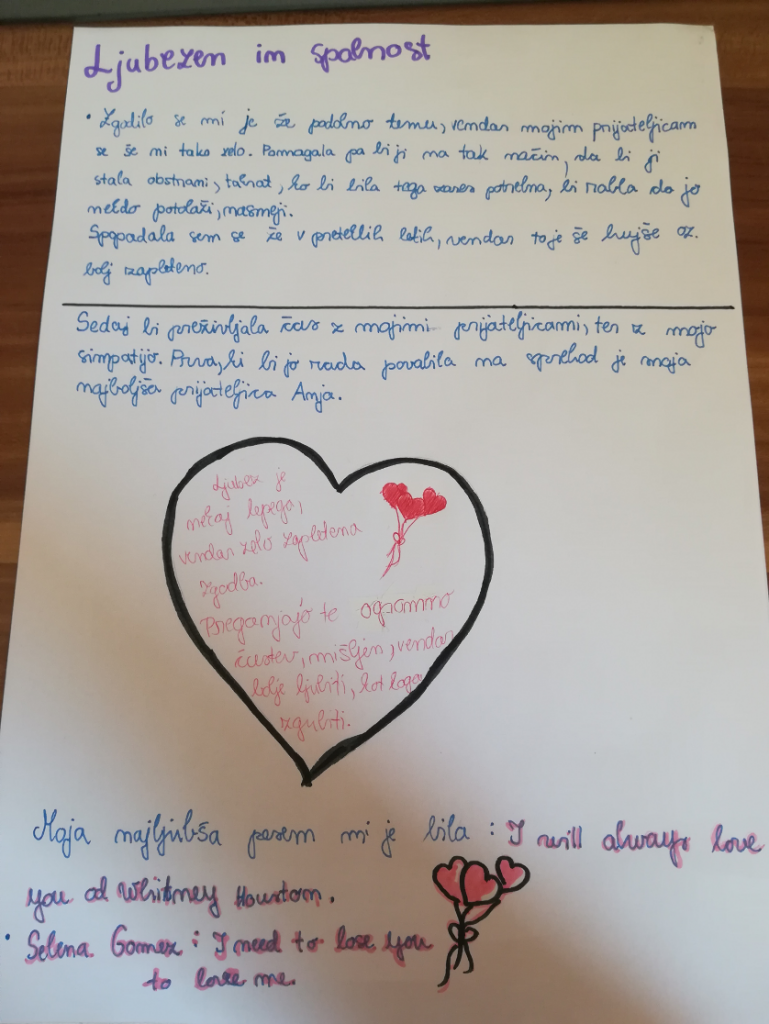 Ljubezen in spolnost
• Zgodilo se mi je že podobno temu, vendar mojim prijateljicam
se še ni tako zelo. Pomagala pa bi ji na tak način, da bi ji
stala obstrani, takrat, ko bi bila tega potrebna, bi rabla da jo
nekdo potolaži, nasmeji.
Spopadala sem se že v preteklih letih, vendar to je še hujše oz.
bolj zapleteno.
Sedaj bi preživljala čas z mojimi prijateljicami, ter z mojo
simpatijo. Prva, ki bi jo rada povabila na sprehod je moja
najboljša prijateljica Anja.
Ljubez je
nekaj lepega,
vendar zelo zapletena
zgodba.
Preganjajo te ogromno
čustev, mišljen, vendar
bolje ljubiti, kot koga
zgubiti.
Moja najljubša pesem mi je bila : I will always love
you od Whitney Houston.
• Selena Gomez : I need to lose you
to love me.